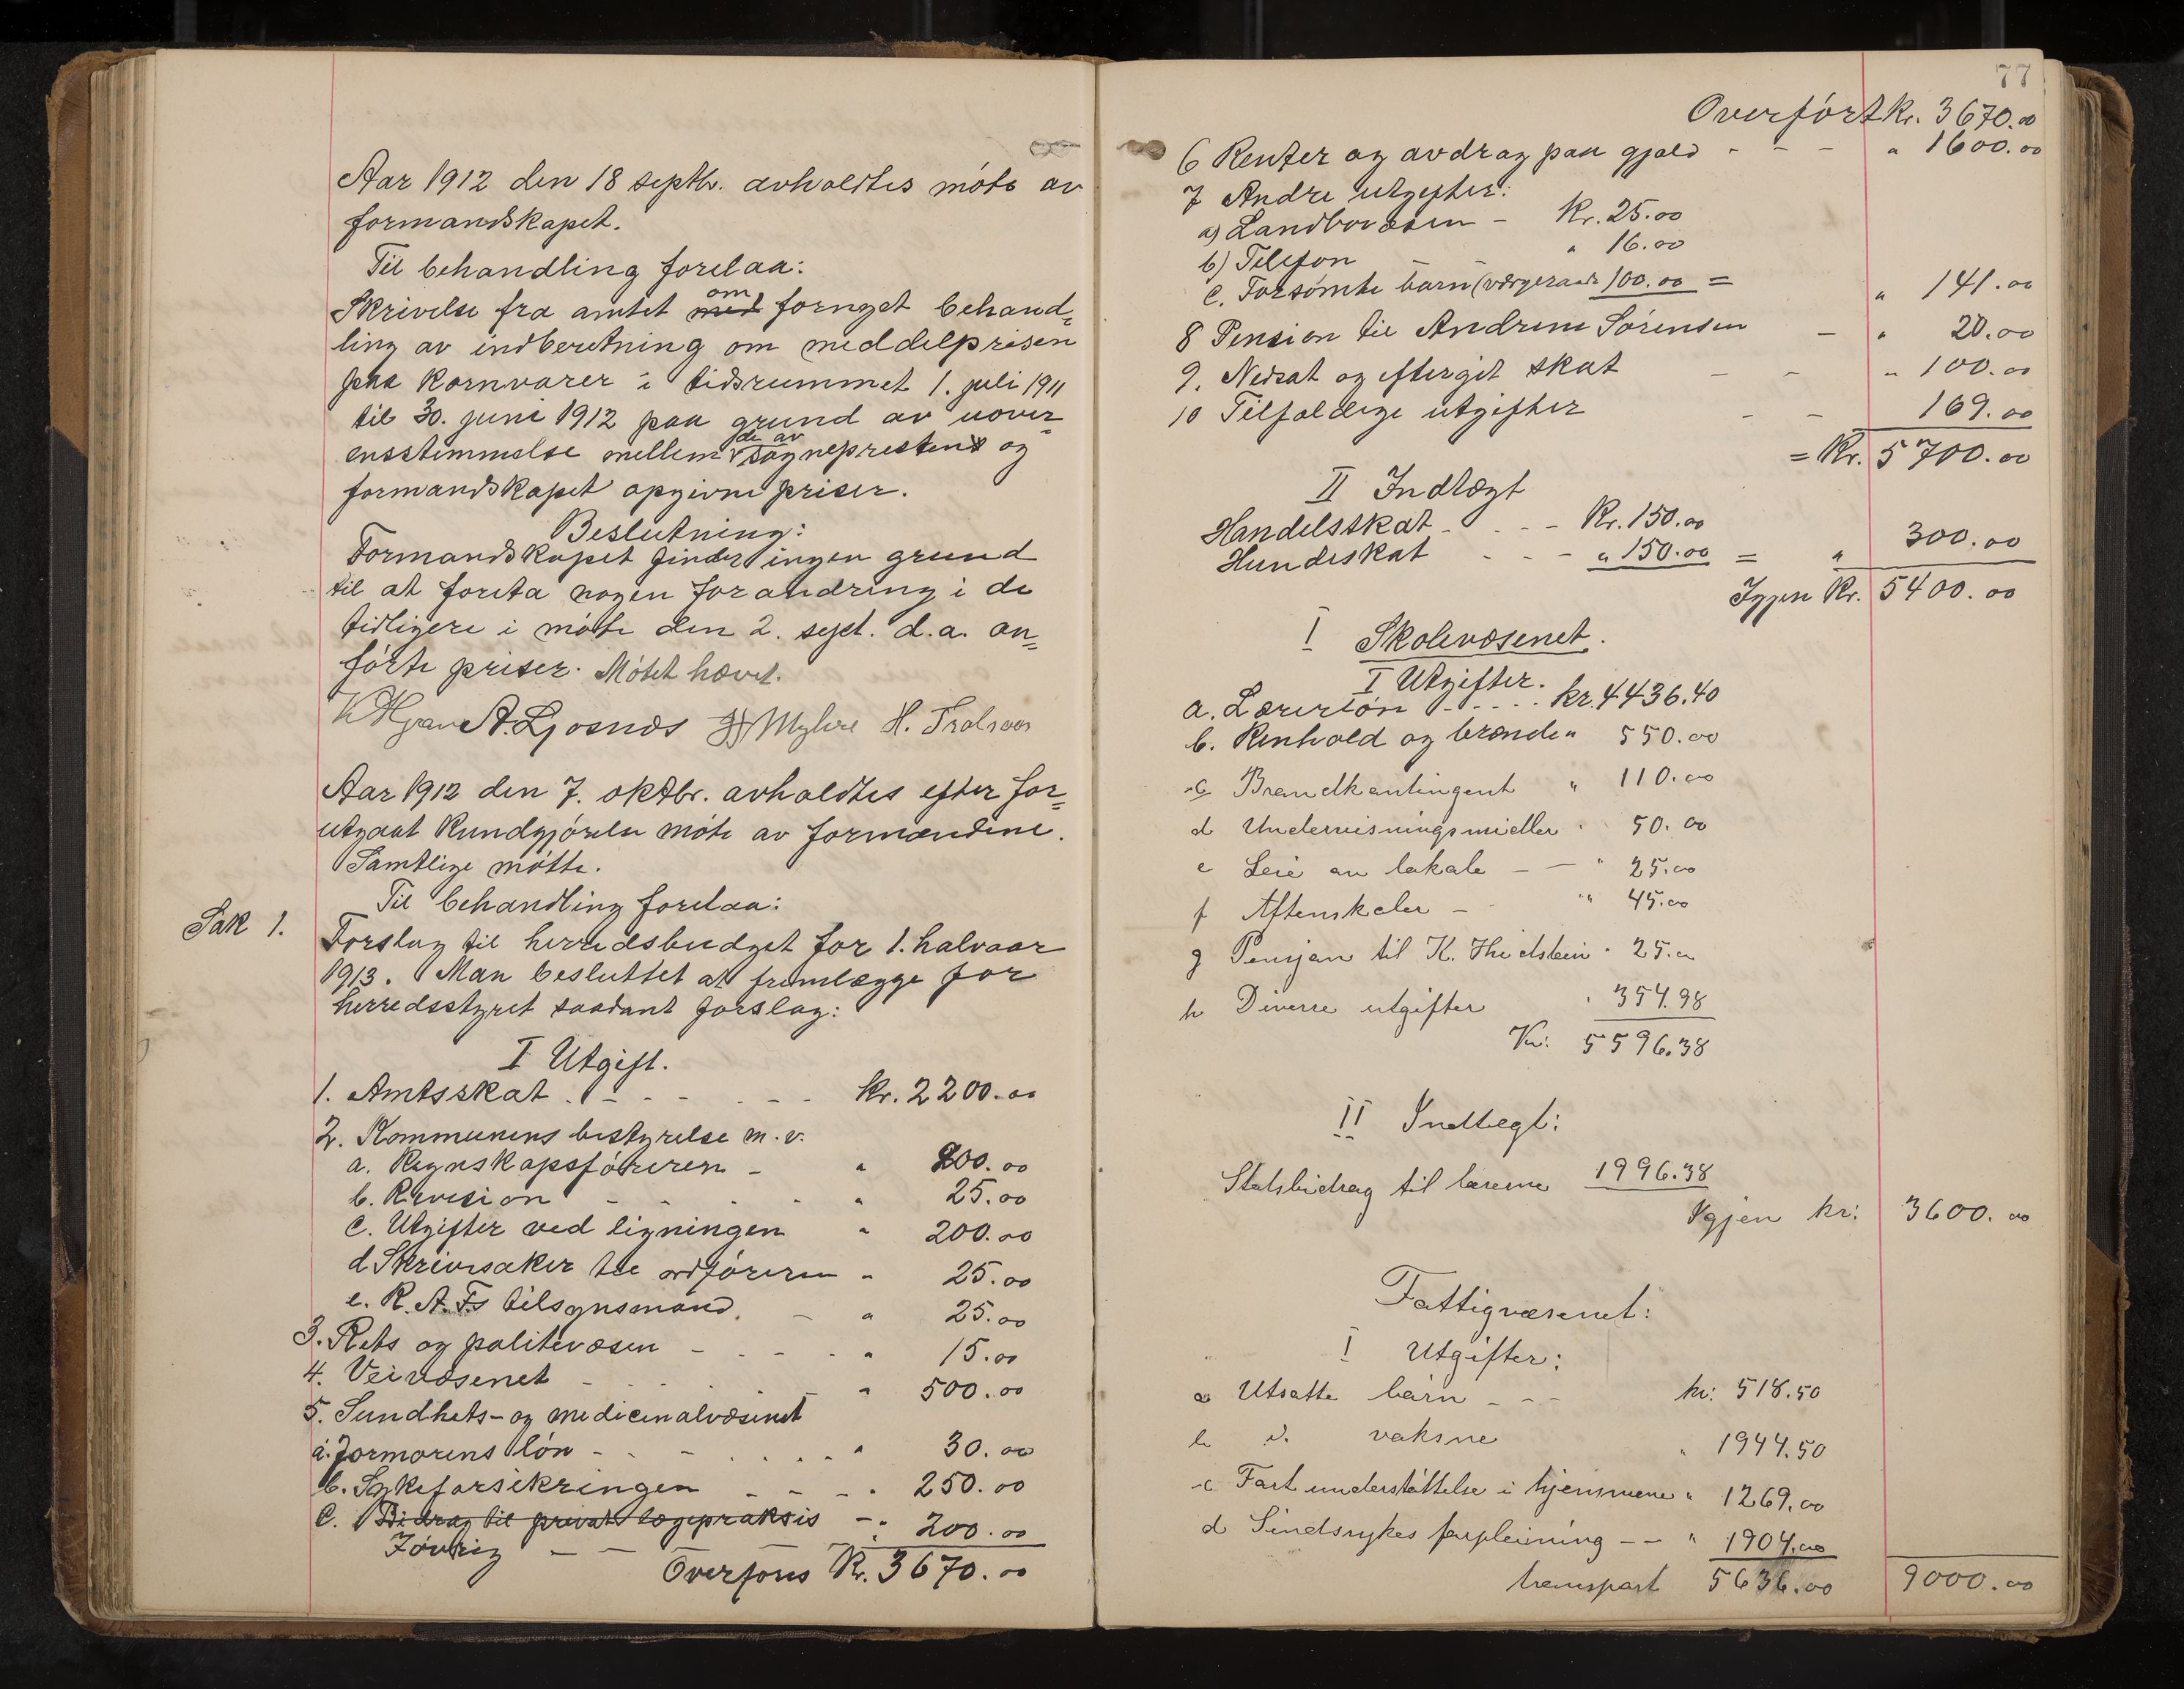 Aar 1912 den 18 septbr. avholdtes møte av
formandskapet.
Til behandling forelaa:
Skrivelse fra amtet om fornyet behand=
ling av indberetning om middelprisen
paa kornvarer i tidsrummet 1. juli 1911
til 30. juni 1912 paa grund av uover=
ensstemmelse mellem de av sognepresten og
formandskapet opgivne priser.
Beslutning:
Formandskapet finder ingen grund
til at foreta nogen forandring i de
tidligere i møte den 2. sept. d.a. an=
førte priser. Møtet hævet.
A. Ljosnæs Myhre H.
Aar 1912 den 7. oktbr. avholdtes efter for=
utgaat kundgjørelse møte av formændene.
Samtlige møtte.
Til behandling forelaa:
Sak 1.
Forslag til herredsbudget for 1. halvaar
1913. Man besluttet at fremlægge for
herredsstyret saadant forslag:
I Utgift.
1. Amtsskat . - - - . - - kr. 2200.00
2. Kommunens bestyrelse m.v.
a. Regnskapsføreren - " 200.00
b. Revision - - . . - " 25.00
c. Utgifter ved ligningen " 200.00
d Skrivesaker til ordføreren " 25.00
e. R.A.Fs tilsynsmand. - " 25.00
3. Rets og politivæsen - - - . " 15.00
4. Veivæsenet - . . . - " 500.00
5. Sundhets- og medicinalvæsenet
a. Jormorens løn - . - . . . . " 30.00
b. Sykeforsikringen - - - . 250.00
c. Bidrag til privat lægepraksis - " 200.00
Iøvrig - - -
Overføres Kr. 3670.00
77
Overført kr. 3670.00
6 Renter og avdrag paa gjæld - - - " 1600.00
7 Andre utgifter:
a) Landbovæsen - Kr. 25.00
b) Telefon " 16.00
c. Forsømte barn (værgeraad) 100.00 = " 141.00
8 Pension til Andrine Sørensen - " 20.00
9. Nedsat og eftergit skat - - " 100.00
10 Tilfældige utgifter - - 169.00
= Kr. 5700.00
II Indtægt
Handelsskat - . . - Kr. 150.00
Hundeskat - - - " 150.00 = " 300.00
Igjen Kr. 5400.00
I Skolevæsenet.
I Utgifter.
a. Lærerløn - . . . . kr. 4436.40
b. Renhold og brænde " 550.00
c Brandkontingent " 110.00
d Undervisningsmidler . 50.00
e Leie av lokale - - " 25.00
f Aftenskoler - " 45.00
g Pensjon til K. Hridstein . 25.00
h Diverse utgifter . 354.98
Kr: 5596.38
II Indtægt:
Statsbidrag til lærerne 1996.38
Igjen kr: 3600.00
Fattigvæsenet:
I Utgifter:
a Utsatte barn - - - kr: 518.50
b d. vaksne " 1944.50
c Fast understøttelse i hjemmene " 1269.00
d Sindssykes forpleining - - " 1904.00
transport 5636.00 9000.00